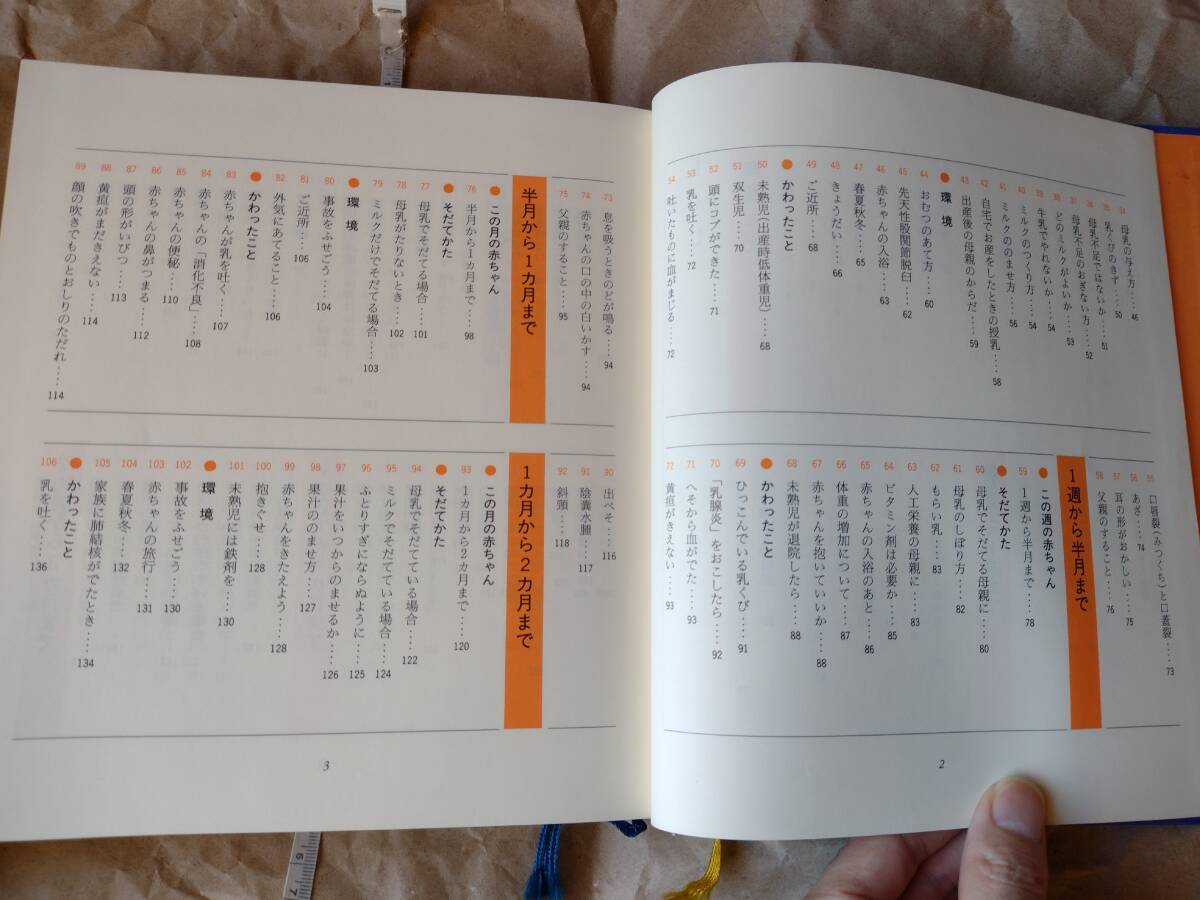 34 母乳の与え方‥‥46
35 乳くびのきず‥‥50
36 母乳不足ではないか‥‥51
37 母乳不足のおぎない方‥‥52
38 どのミルクがよいか‥‥53
39 牛乳でやれないか‥‥54
40 ミルクのつくり方‥‥54
41 ミルクののませ方‥‥56
42 自宅でお産をしたときの授乳‥‥58
43 出産後の母親のからだ‥‥59
●環境
44 おむつのあて方‥‥60
45 先天性股関節脱臼‥‥62
46 赤ちゃんの入浴‥‥63
47 春夏秋冬‥‥65
48 きょうだい‥‥66
49 ご近所‥‥68
●かわったこと
50 未熟児(出産時低体重児)‥‥68
51 双生児‥‥70
52 頭にコブができた‥‥71
53 乳を吐く‥‥72
54 吐いたものに血がまじる‥‥72
55 口唇裂(みつくち)と口蓋裂‥‥73
56 あざ‥‥74
57 耳の形がおかしい‥‥75
58 父親のすること‥‥76
1週から半月まで
●この週の赤ちゃん
59 1週から半月まで‥‥78
●そだてかた
60 母乳でそだてる母親に‥‥80
61 母乳のしぼり方‥‥82
62 もらい乳‥‥83
63 人工栄養の母親に‥‥83
64 ビタミン剤は必要か‥‥85
65 赤ちゃんの入浴のあと‥‥86
66 体重の増加について‥‥87
67 赤ちゃんを抱いていいか‥‥88
68 未熟児が退院したら‥‥88
●かわったこと
69 ひっこんでいる乳くび‥‥91
70 「乳腺炎」をおこしたら‥‥92
71 へそから血がでた‥‥93
72 黄疸がきえない‥‥93
2
73 息を吸うときのどが鳴る‥‥94
74 赤ちゃんの口の中の白いかす‥‥94
75 父親のすること‥‥95
半月から1カ月まで
●この月の赤ちゃん
76 半月から1カ月まで‥‥98
●そだてかた
77 母乳でそだてる場合‥‥101
78 母乳がたりないとき‥‥102
79 ミルクだけでそだてる場合‥‥103
●環境
80 事故をふせごう‥‥104
81 ご近所‥‥106
82 外気にあてること‥‥106
●かわったこと
83 赤ちゃんが乳を吐く‥‥107
84 赤ちゃんの「消化不良」‥‥108
85 赤ちゃんの便秘‥‥110
86 赤ちゃんの鼻がつまる‥‥112
87 頭の形がいびつ‥‥113
88 黄疸がまだきえない‥‥114
89 顔の吹きでものとおしりのただれ‥‥114
90 出べそ‥‥116
91 陰嚢水腫‥‥117
92 斜頸‥‥118
1カ月から2カ月まで
●この月の赤ちゃん
93 1カ月から2カ月まで‥‥120
●そだてかた
94 母乳でそだてている場合‥‥122
95 ミルクでそだてている場合‥‥124
96 ふとりすぎにならぬように‥‥125
97 果汁をいつからのませるか‥‥126
98 果汁ののませ方‥‥127
99 赤ちゃんをきたえよう‥‥128
100 抱きぐせ‥‥128
101 未熟児には鉄剤を‥‥130
●環境
102 事故をふせごう‥‥130
103 赤ちゃんの旅行‥‥131
104 春夏秋冬‥‥132
105 家族に肺結核がでたとき‥‥134
●かわったこと
106 乳を吐く‥‥136
3
6
7